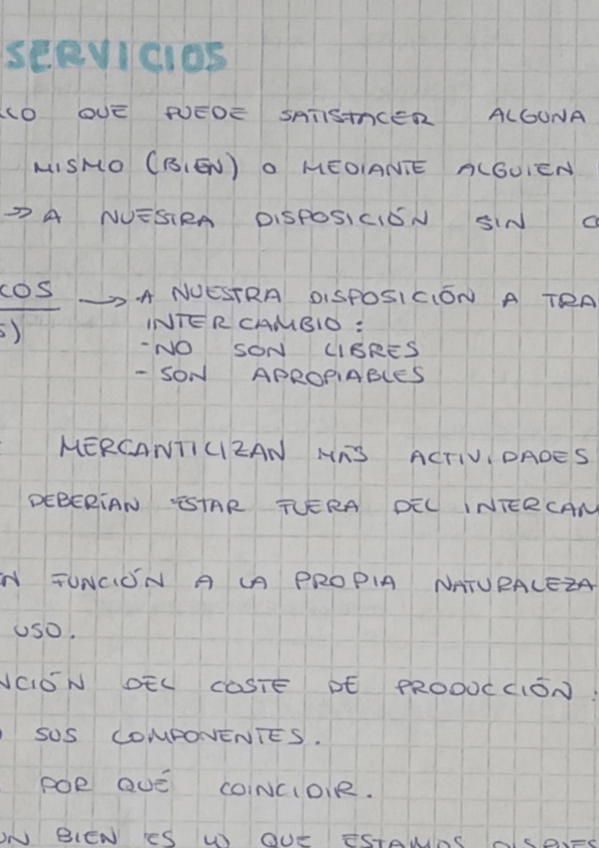 SERVICIOS
LO QUE PUEDE SATISFACER ALGUNA
MISMO (BIEN) O MEDIANTE ALGUIEN
=> A NUESTRA DISPOSICIÓN SIN
COS → A NUESTRA DISPOSICIÓN A TRA
S) INTERCAMBIO:
- NO SON LIBRES
- SON APROPIABLES
MERCANTILIZAN MÁS ACTIVIDADES
DEBERÍAN ESTAR FUERA DEL INTERCAM
N FUNCIÓN A LA PROPIA NATURALEZA
USO.
NCIÓN DEL COSTE DE PRODUCCIÓN:
SUS COMPONENTES.
POR QUÉ COINCIDIR.
UN BIEN ES LO QUE ESTAMOS